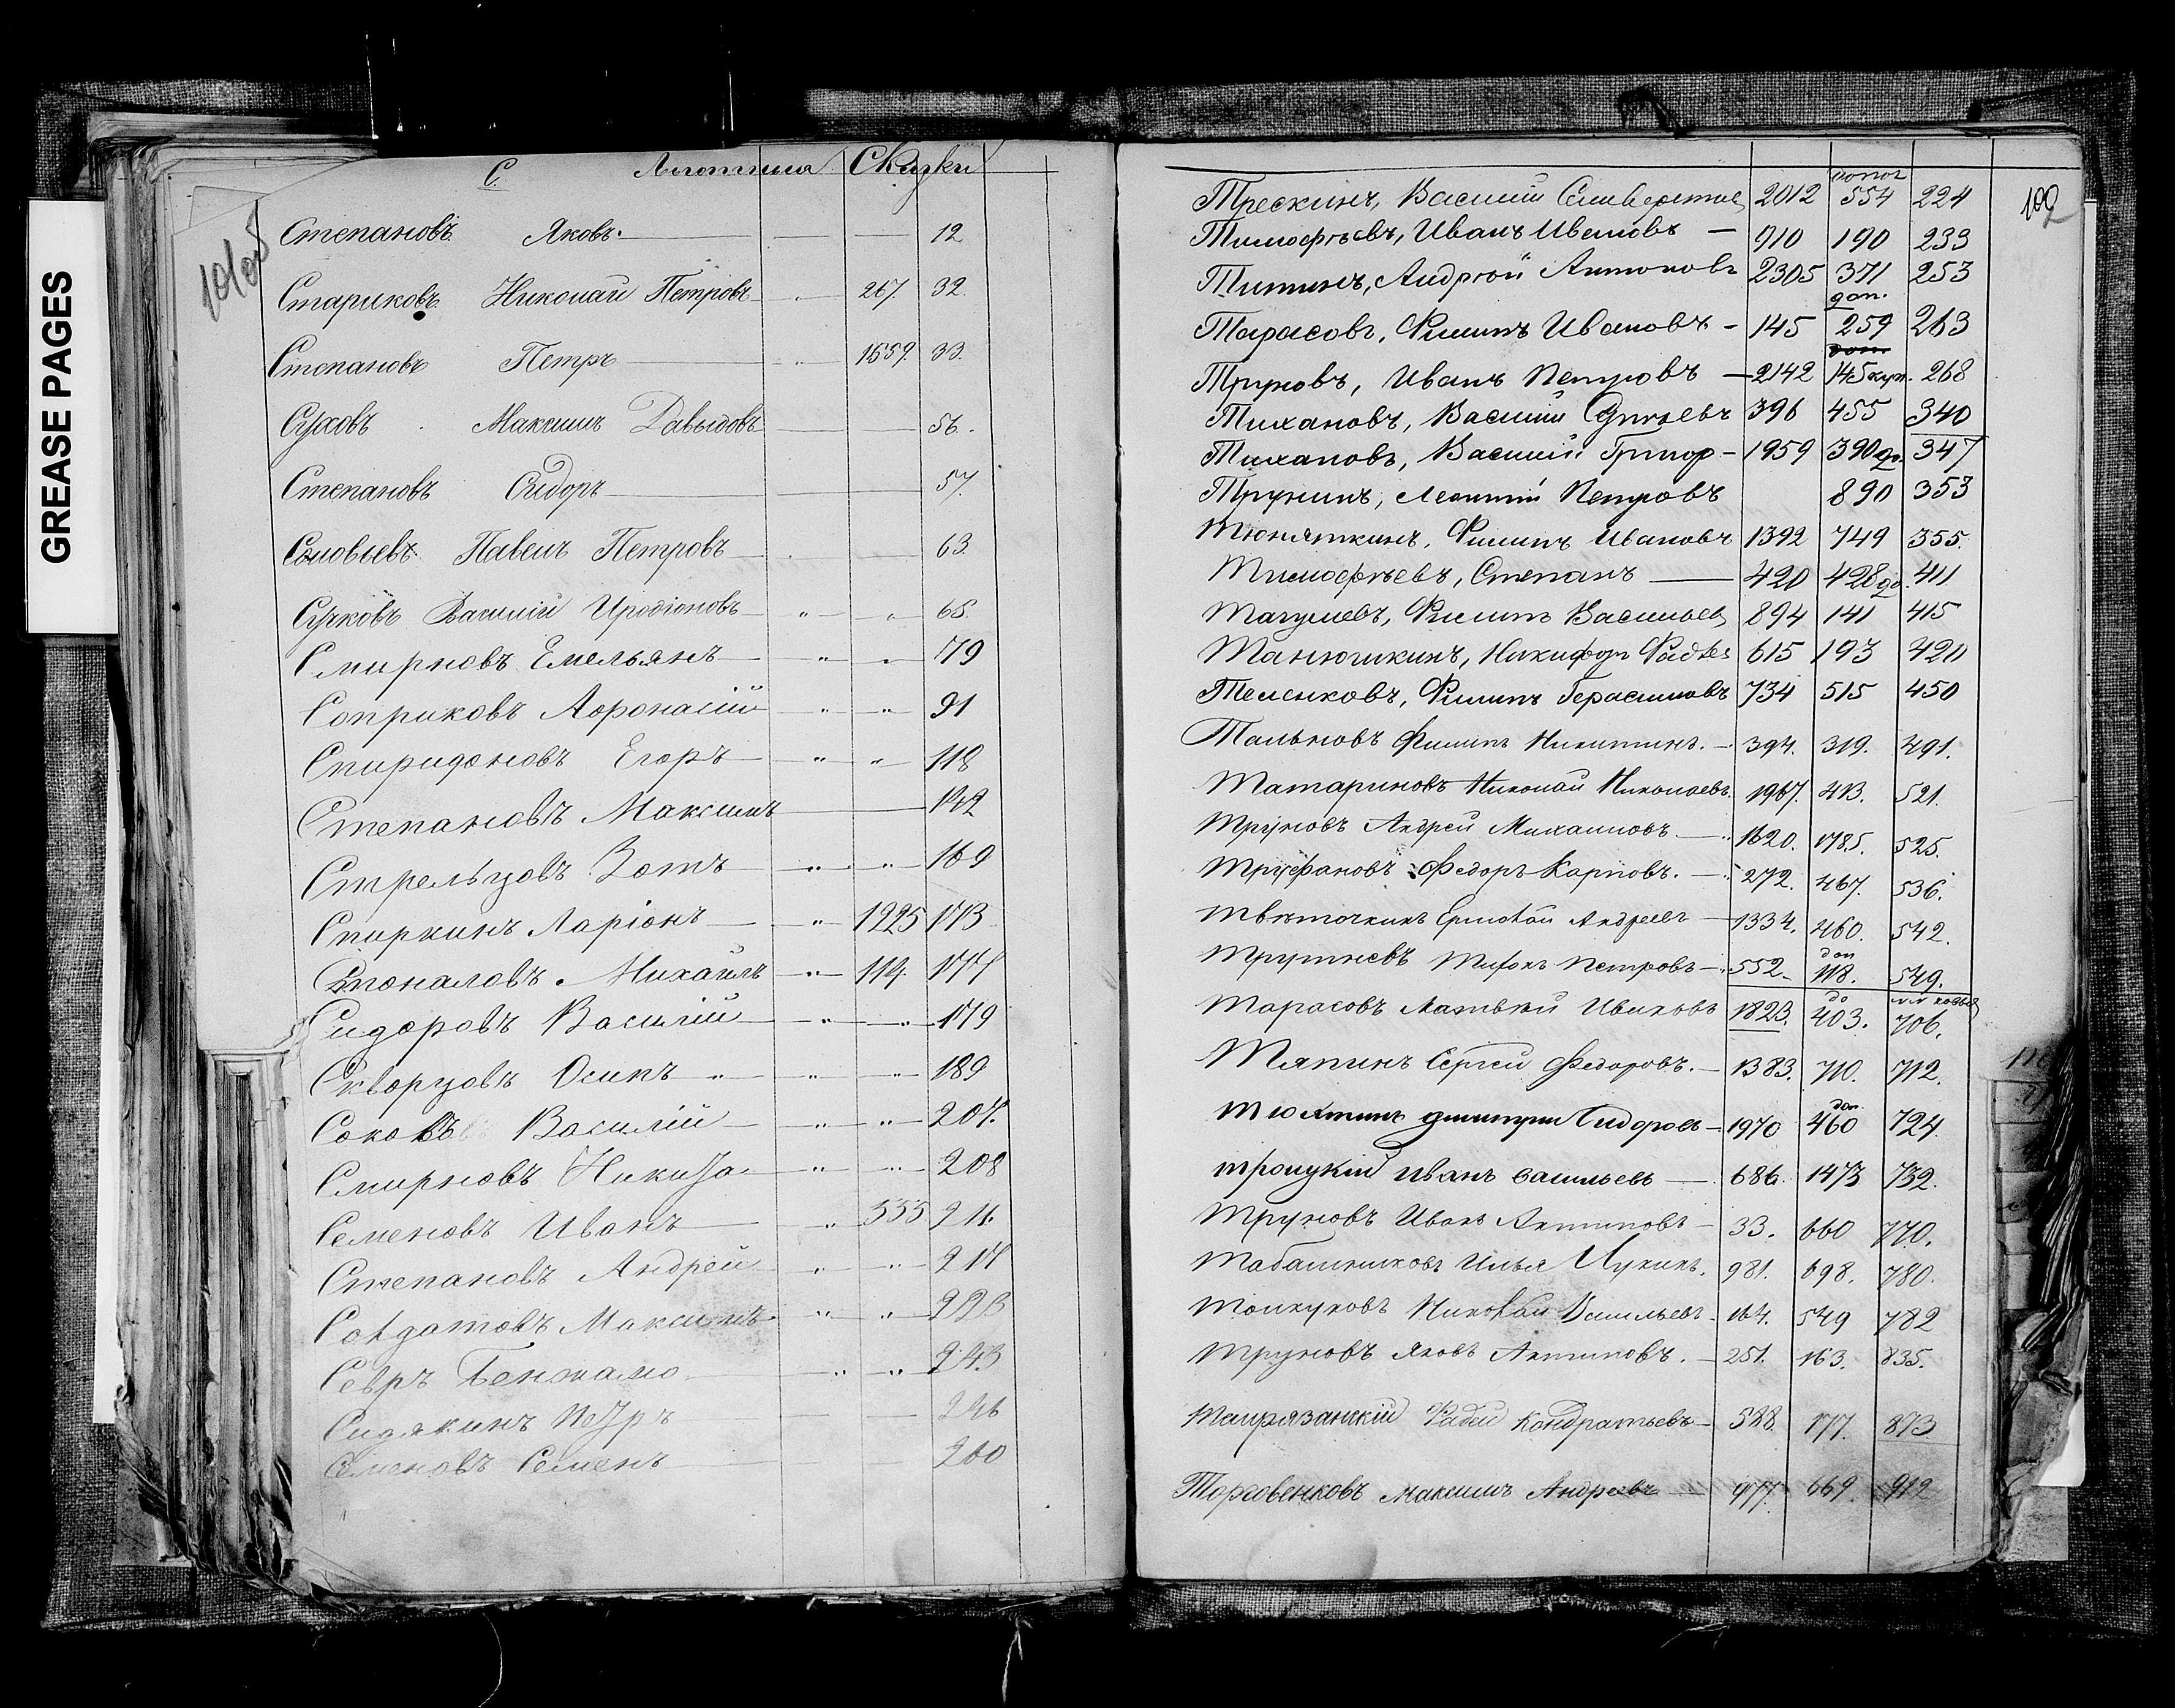 GREASE PAGES
С. Сказки
Степановъ Яковъ. 12
Стариковъ Николай Петровъ 267. 32.
Степановъ Петръ 1559. 33.
Суховъ Максимъ Давыдовъ 56.
Степановъ Сидоръ 57.
Соловьевъ Павелъ Петровъ 63.
Сучковъ Василій Иродіоновъ 65.
Смирновъ Емельянъ 79
Соприковъ Афонасій 91
Спиридоновъ Егоръ 118
Степановъ Максимъ 142
Стрельцовъ Зотъ 169
Спиркинъ Ларіонъ 1225 173
Михайлъ 114. 177
Сидоровъ Василій 179
Скворцовъ Осипъ 189
Соковъ Василій 207.
Смирновъ Никита 208
Семеновъ Иванъ 555 211.
Степановъ Андрей 217
Солдатовъ Максимъ 223
Севръ Бенжамо 243
Сидякинъ Петръ 246
Семеновъ Семенъ 260
102
Трескинъ, Василій 2012 554 224
Тимофѣевъ, Иванъ Ивановъ — 910 190 233
Титинъ, Андрѣй Антоновъ 2305 371 253
доп.
Тарасовъ, Филипъ Ивановъ - 145 259 263
Труновъ, Иванъ Петровъ — 2142 145 куп. 268
Тихановъ, Василій 396 455 340
Тихановъ, Василій Григор - 1959 390 до. 347
Трунинъ, Леонтій Петровъ 890 353
Тюняткинъ, Филипъ Ивановъ 1392 749 355.
Тимофѣевъ, Степанъ — 420 428 до. 411
Филипъ Васильев 894 141 415
Танюшкинъ, Никифор Фадѣе 615 193 420
Теленковъ, Филипъ Герасимовъ 734 515 450
Тальновъ Филипъ Никитинъ. - 394. 319. 491.
Татариновъ Николай Николаевъ. 1967. 413. 521.
Труновъ Андрей Михаиловъ. 1620. 1785. 525.
Труфановъ Федоръ Карповъ. 272. 467. 536.
Твѣточкинъ Ермолай Андреевъ 1334. 460. 542.
доп
Тифонъ Петровъ 552. 118. 549.
до
Тарасовъ Матвѣй Ивановъ 1823. 403. 706.
Тяпинъ Сергей Федоровъ. - 1383. 710. 712.
доп
Тюхтинъ Дмитрий Сидоровъ - 1970 460 724.
Троицкій Иванъ Васильевъ — 686. 1473 732.
Труновъ Иванъ Антиповъ - 33. 660 770.
Табашниковъ Илья Лукинъ. 981. 698. 780.
Толкуновъ Николай Васильевъ. 164. 549 782
Труновъ Яковъ Антиповъ. - 251. 163. 835.
Фадей Кондратьевъ - 528. 177. 873
Торговенковъ Максимъ Андреевъ — 977. 669. 912